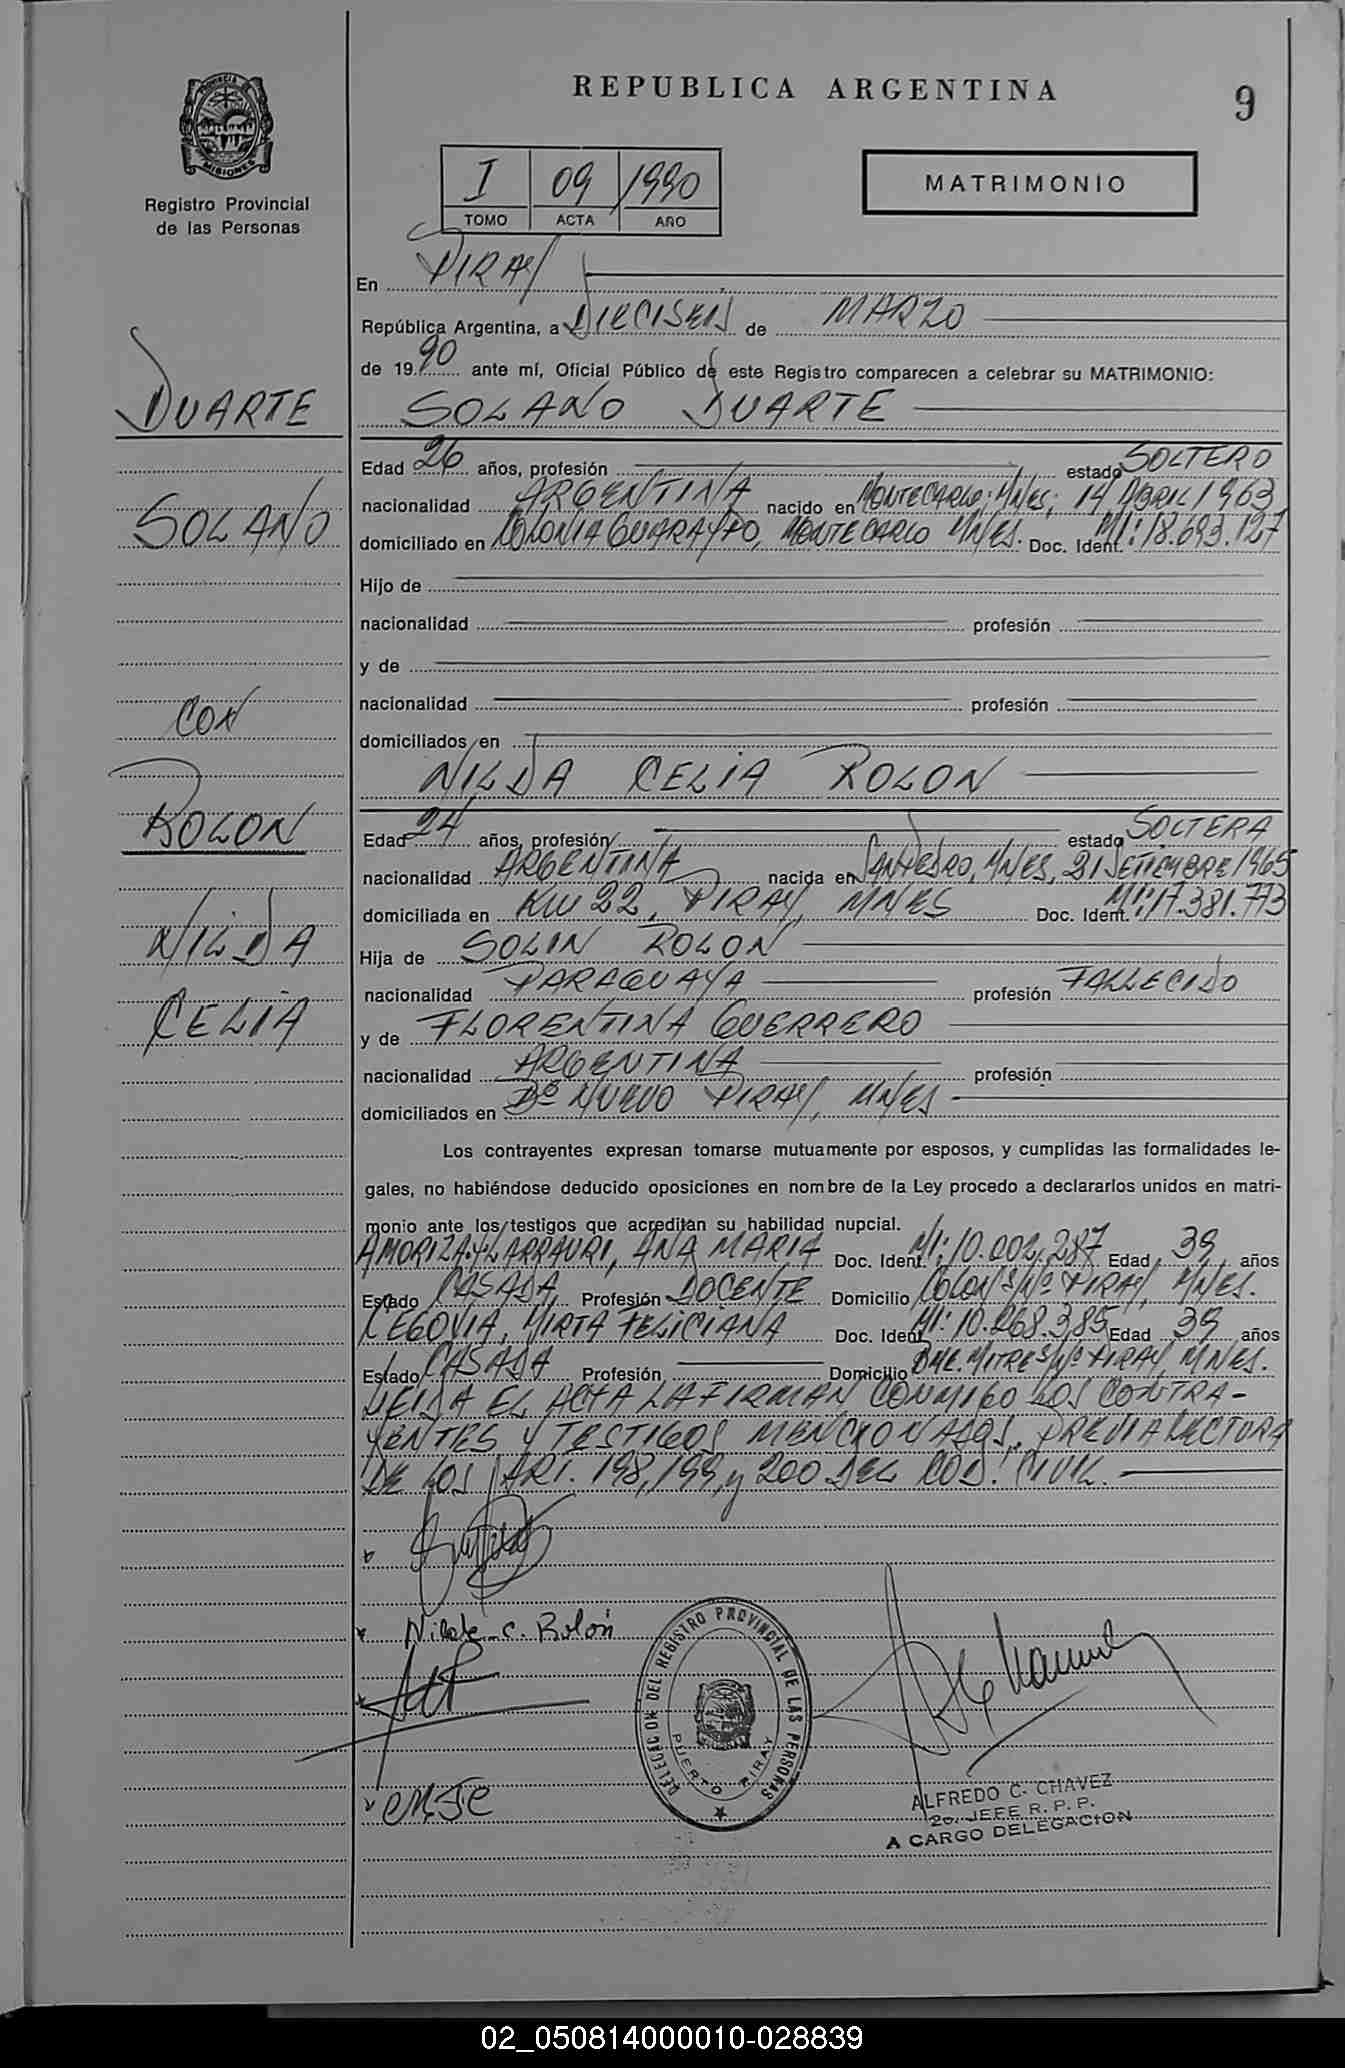 REPUBLICA ARGENTINA
9
PROVINCIA DE MISIONES
Registro Provincial
de las Personas
I 09 1990
TOMO ACTA AÑO
MATRIMONIO
En PIRAY
República Argentina, a DIECISEIS de MARZO
de 1990 ante mí, Oficial Público de este Registro comparecen a celebrar su MATRIMONIO:
DUARTE
SOLANO
CON
ROLON
NILDA
CELIA
SOLANO DUARTE
Edad 26 años, profesión estado SOLTERO
nacionalidad ARGENTINA nacido en MONTECARLO, MNES, 14 ABRIL 1963
domiciliado en COLONIA GUARAYPO, MONTECARLO MNES. Doc. Ident. MI: 18.693.127
Hijo de
nacionalidad profesión
y de
nacionalidad profesión
domiciliados en
NILDA CELIA ROLON
Edad 24 años, profesión estado SOLTERA
nacionalidad ARGENTINA nacida en SAN PEDRO, MNES, 21 SETIEMBRE 1965
domiciliada en KM 22, PIRAY, MNES Doc. Ident. MI: 17.381.773
Hija de SOLIN ROLON
nacionalidad PARAGUAYA profesión FALLECIDO
y de FLORENTINA GUERRERO
nacionalidad ARGENTINA profesión
domiciliados en Bº NUEVO PIRAY, MNES
Los contrayentes expresan tomarse mutuamente por esposos, y cumplidas las formalidades le-
gales, no habiéndose deducido oposiciones en nombre de la Ley procedo a declararlos unidos en matri-
monio ante los testigos que acreditan su habilidad nupcial.
LARRAURI, ANA MARIA Doc. Ident. MI: 10.002.287 Edad 39 años
Estado CASADA Profesión DOCENTE Domicilio COLON S/Nº PIRAY, MNES.
CEGOVIA, MIRTA FELICIANA Doc. Ident MI: 10.268.385 Edad 39 años
Estado CASADA Profesión Domicilio MITRE S/Nº PIRAY MNES.
LEIDA EL ACTA LA FIRMAN CONMIGO LOS CONTRA-
YENTES Y TESTIGOS MENCIONADOS, PREVIA LECTURA
DE LOS ART. 198, 199, y 200 DEL COD. CIVIL.
Nilda C. Rolón
DELEGACION DEL REGISTRO PROVINCIAL DE LAS PERSONAS
PUERTO PIRAY
ALFREDO C. CHAVEZ
2o. JEFE R. P. P.
A CARGO DELEGACION
02_050814000010-028839